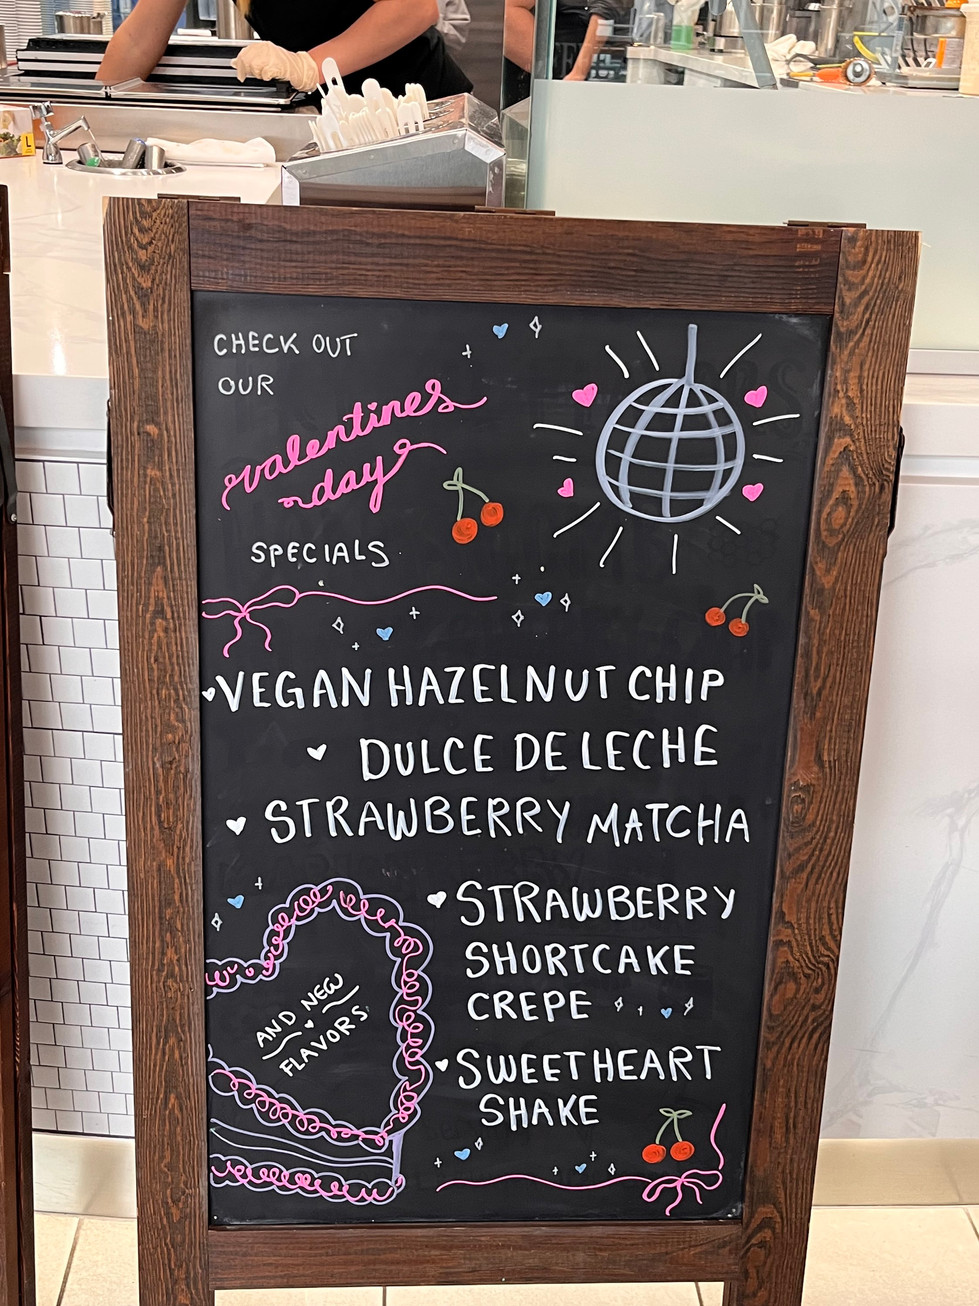 CHECK OUT
OUR
valentines
day
SPECIALS
VEGAN HAZELNUT CHIP
DULCE DE LECHE
STRAWBERRY MATCHA
STRAWBERRY
SHORTCAKE
CREPE
SWEETHEART
SHAKE
AND NEW
FLAVORS
L